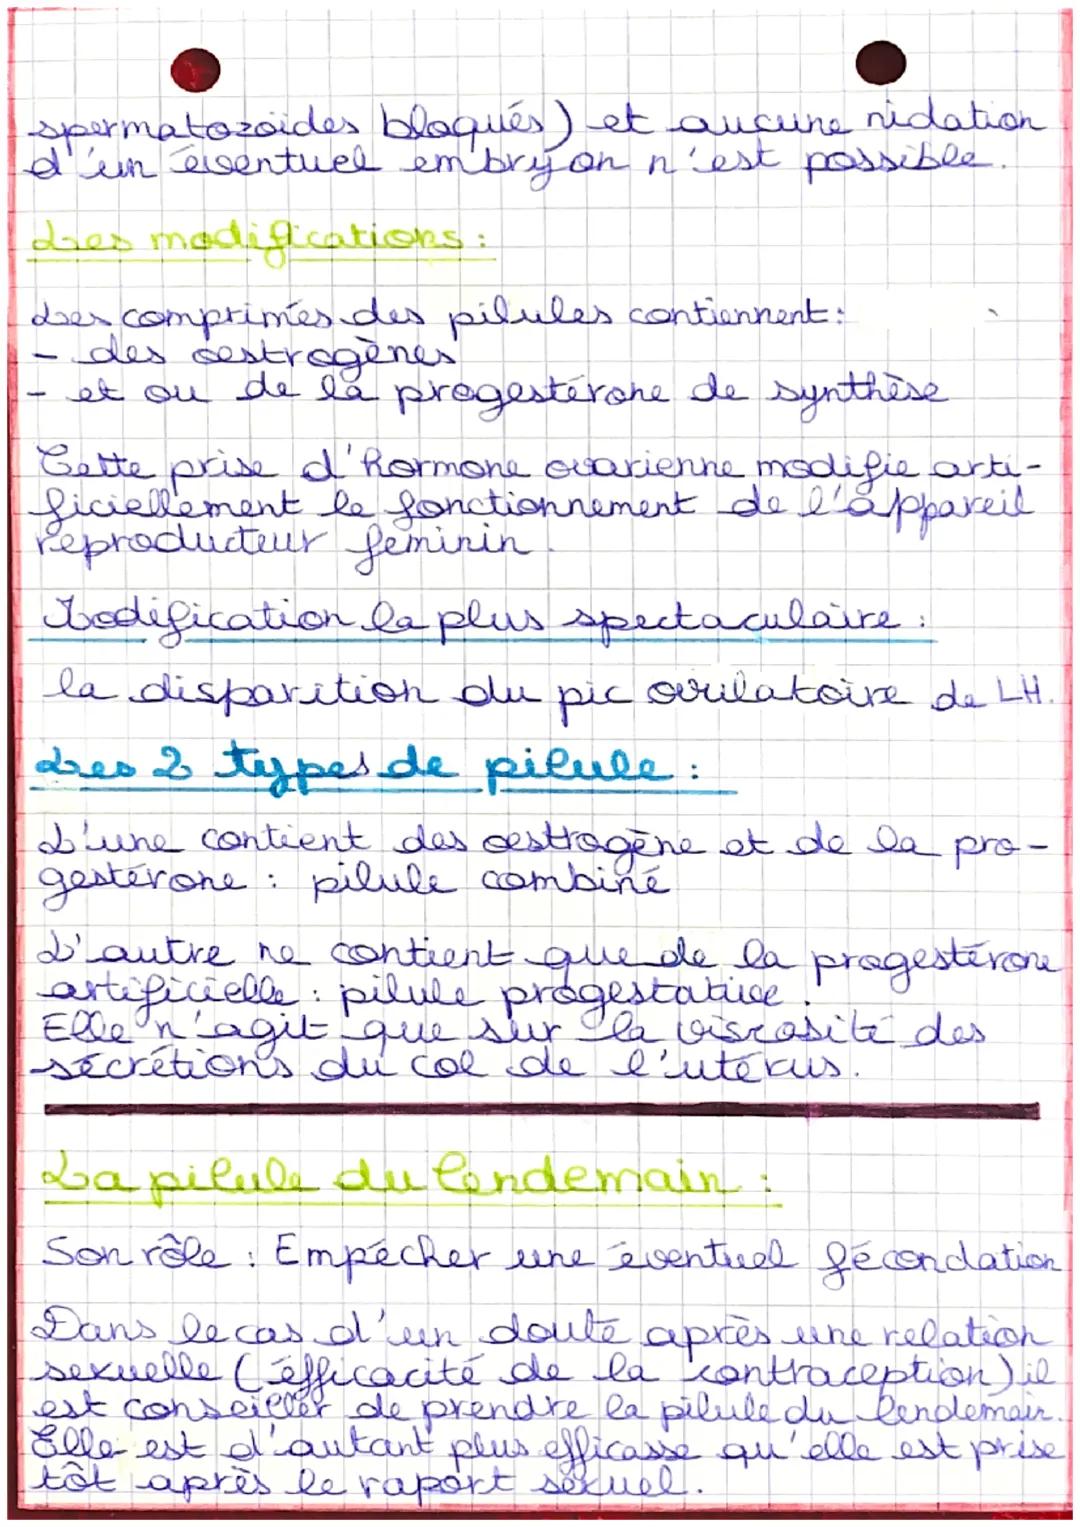 spermatozoïdes bloqués) et aucune nidation
d'un éventuel embryon n'est possible.
Les modifications :
Les comprimés des pilules contiennent :
- des oestrogènes
- et ou de la progestérone de synthèse
Cette prise d'hormone ovarienne modifie arti-
ficiellement le fonctionnement de l'appareil
reproducteur féminin.
Modification la plus spectaculaire :
la disparition du pic ovulatoire de LH.
Les 2 types de pilule :
L'une contient des oestrogène et de la pro-
gestérone : pilule combiné
L'autre ne contient que de la progestérone
artificielle : pilule progestative.
Elle n'agit que sur la viscosité des
sécrétions du col de l'utérus.
La pilule du lendemain :
Son rôle : Empêcher une éventuel fécondation
Dans le cas d'un doute après une relation
sexuelle (éfficacité de la contraception) il
est conseiller de prendre la pilule du lendemain.
Elle est d'autant plus efficasse qu'elle est prise
tôt après le raport sexuel.